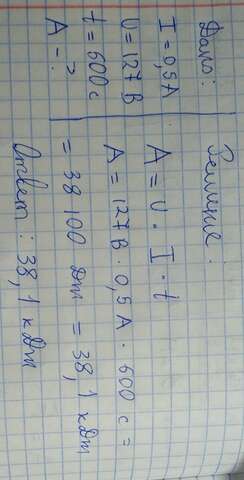 Дано:
I = 0,5 А
U = 127 В
t = 600 с
А - ?
Решение.
А = U · I · t
А = 127В · 0,5 А · 600 с =
= 38 100 Дж = 38,1 кДж
Ответ: 38,1 кДж